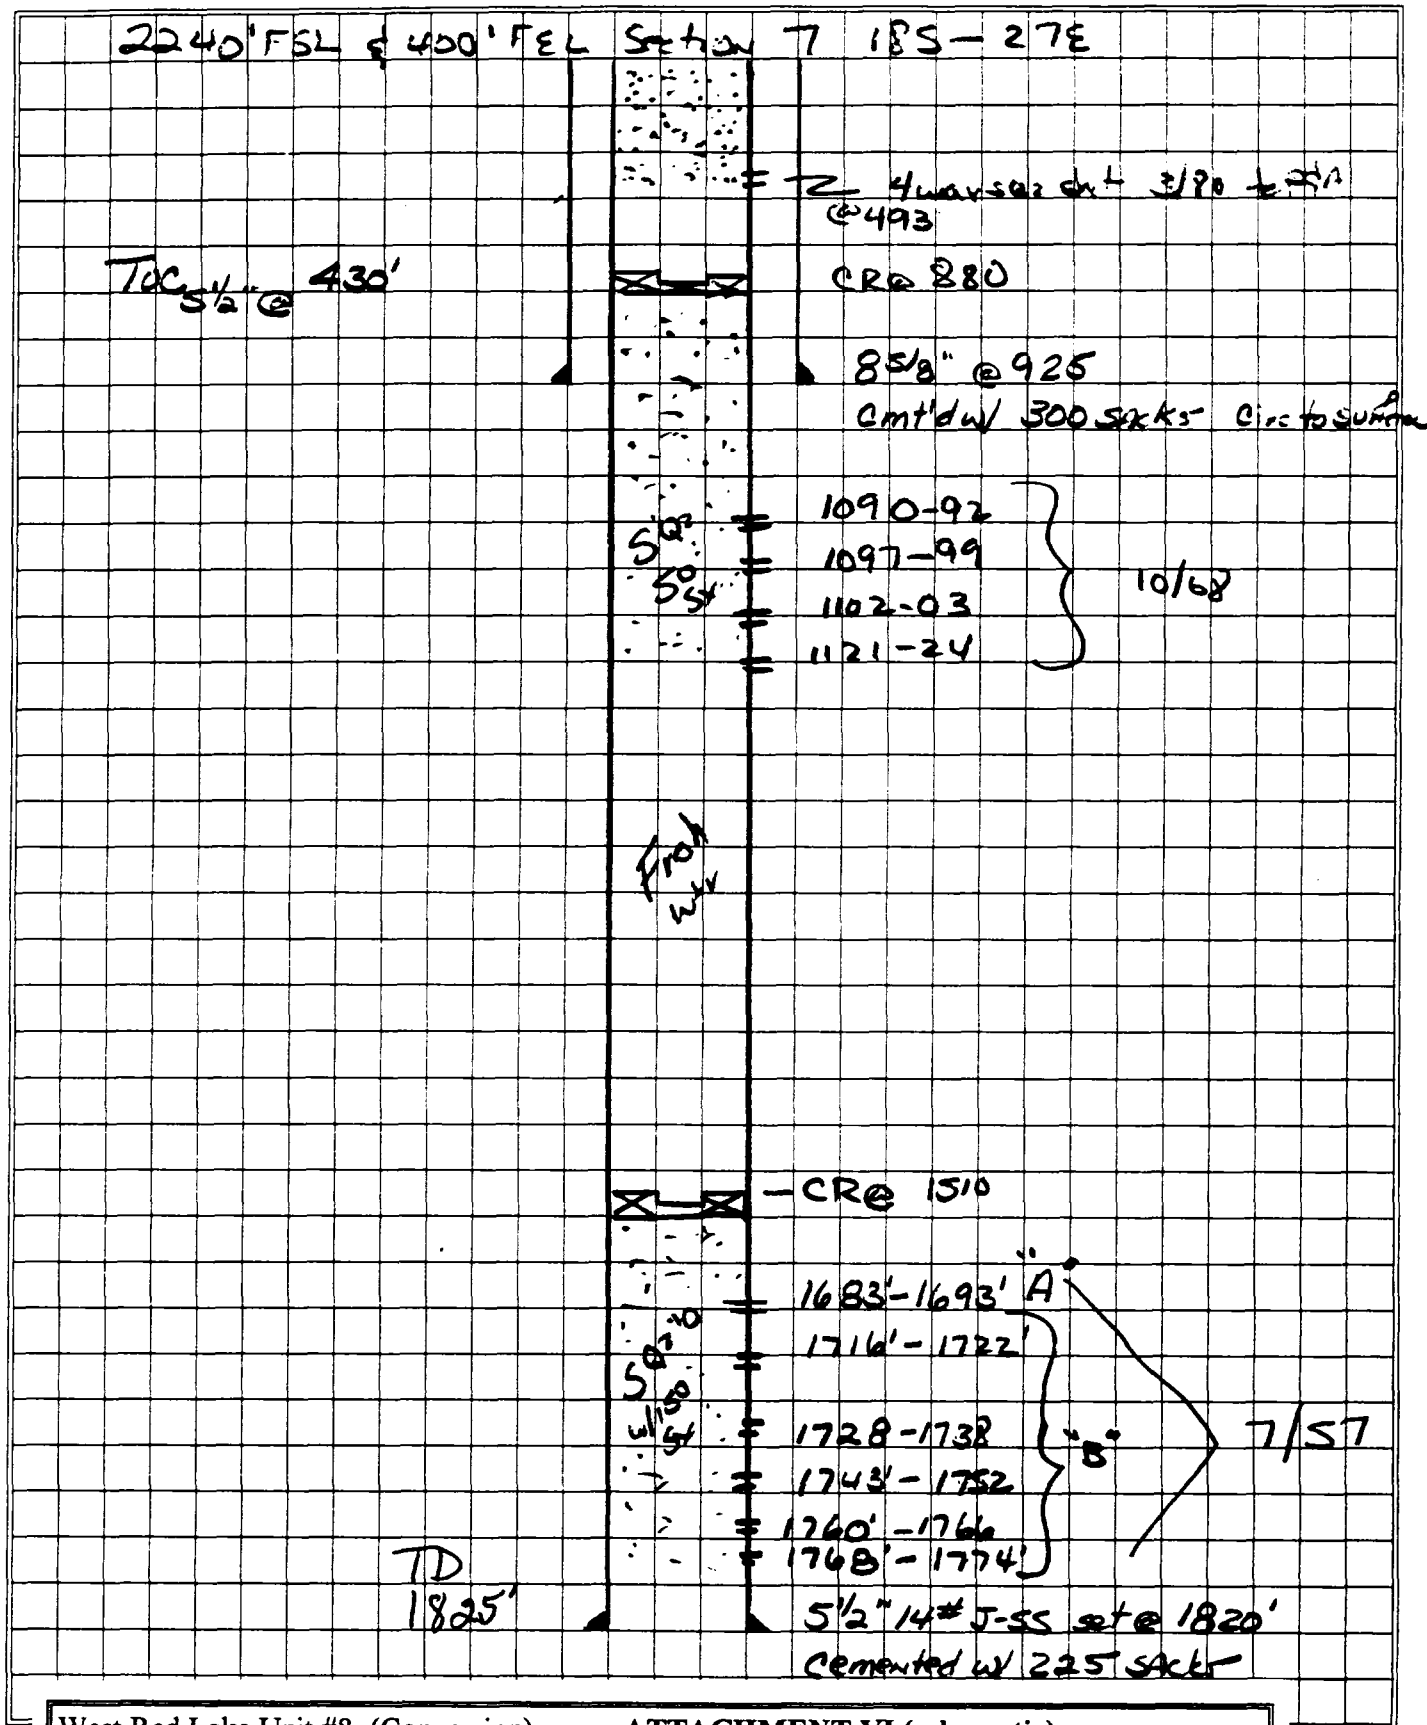 2240' FSL & 400' FEL Section 7 18S-27E
4 way sqz 3/80
@ 493
TOC 5 1/2" @ 430'
CR@ 880
8 5/8" @ 925
Cmt'd w/ 300 sacks Circ to surface
1090-92
1097-99
1102-03
1121-24
10/68
SQZ
50 sx
Fresh
wtr
- CR@ 1510
1683'-1693' "A"
1716'-1722'
1728-1738
1743'-1752
1760'-1766
1768'-1774'
"B"
7/57
SQZ'D
w/150
sx
TD
1825'
5 1/2" 14# J-55 set @ 1820'
Cemented w/ 225 sacks
West Red Lake Unit #8 (Conversion) ATTACHMENT VI (schematic)